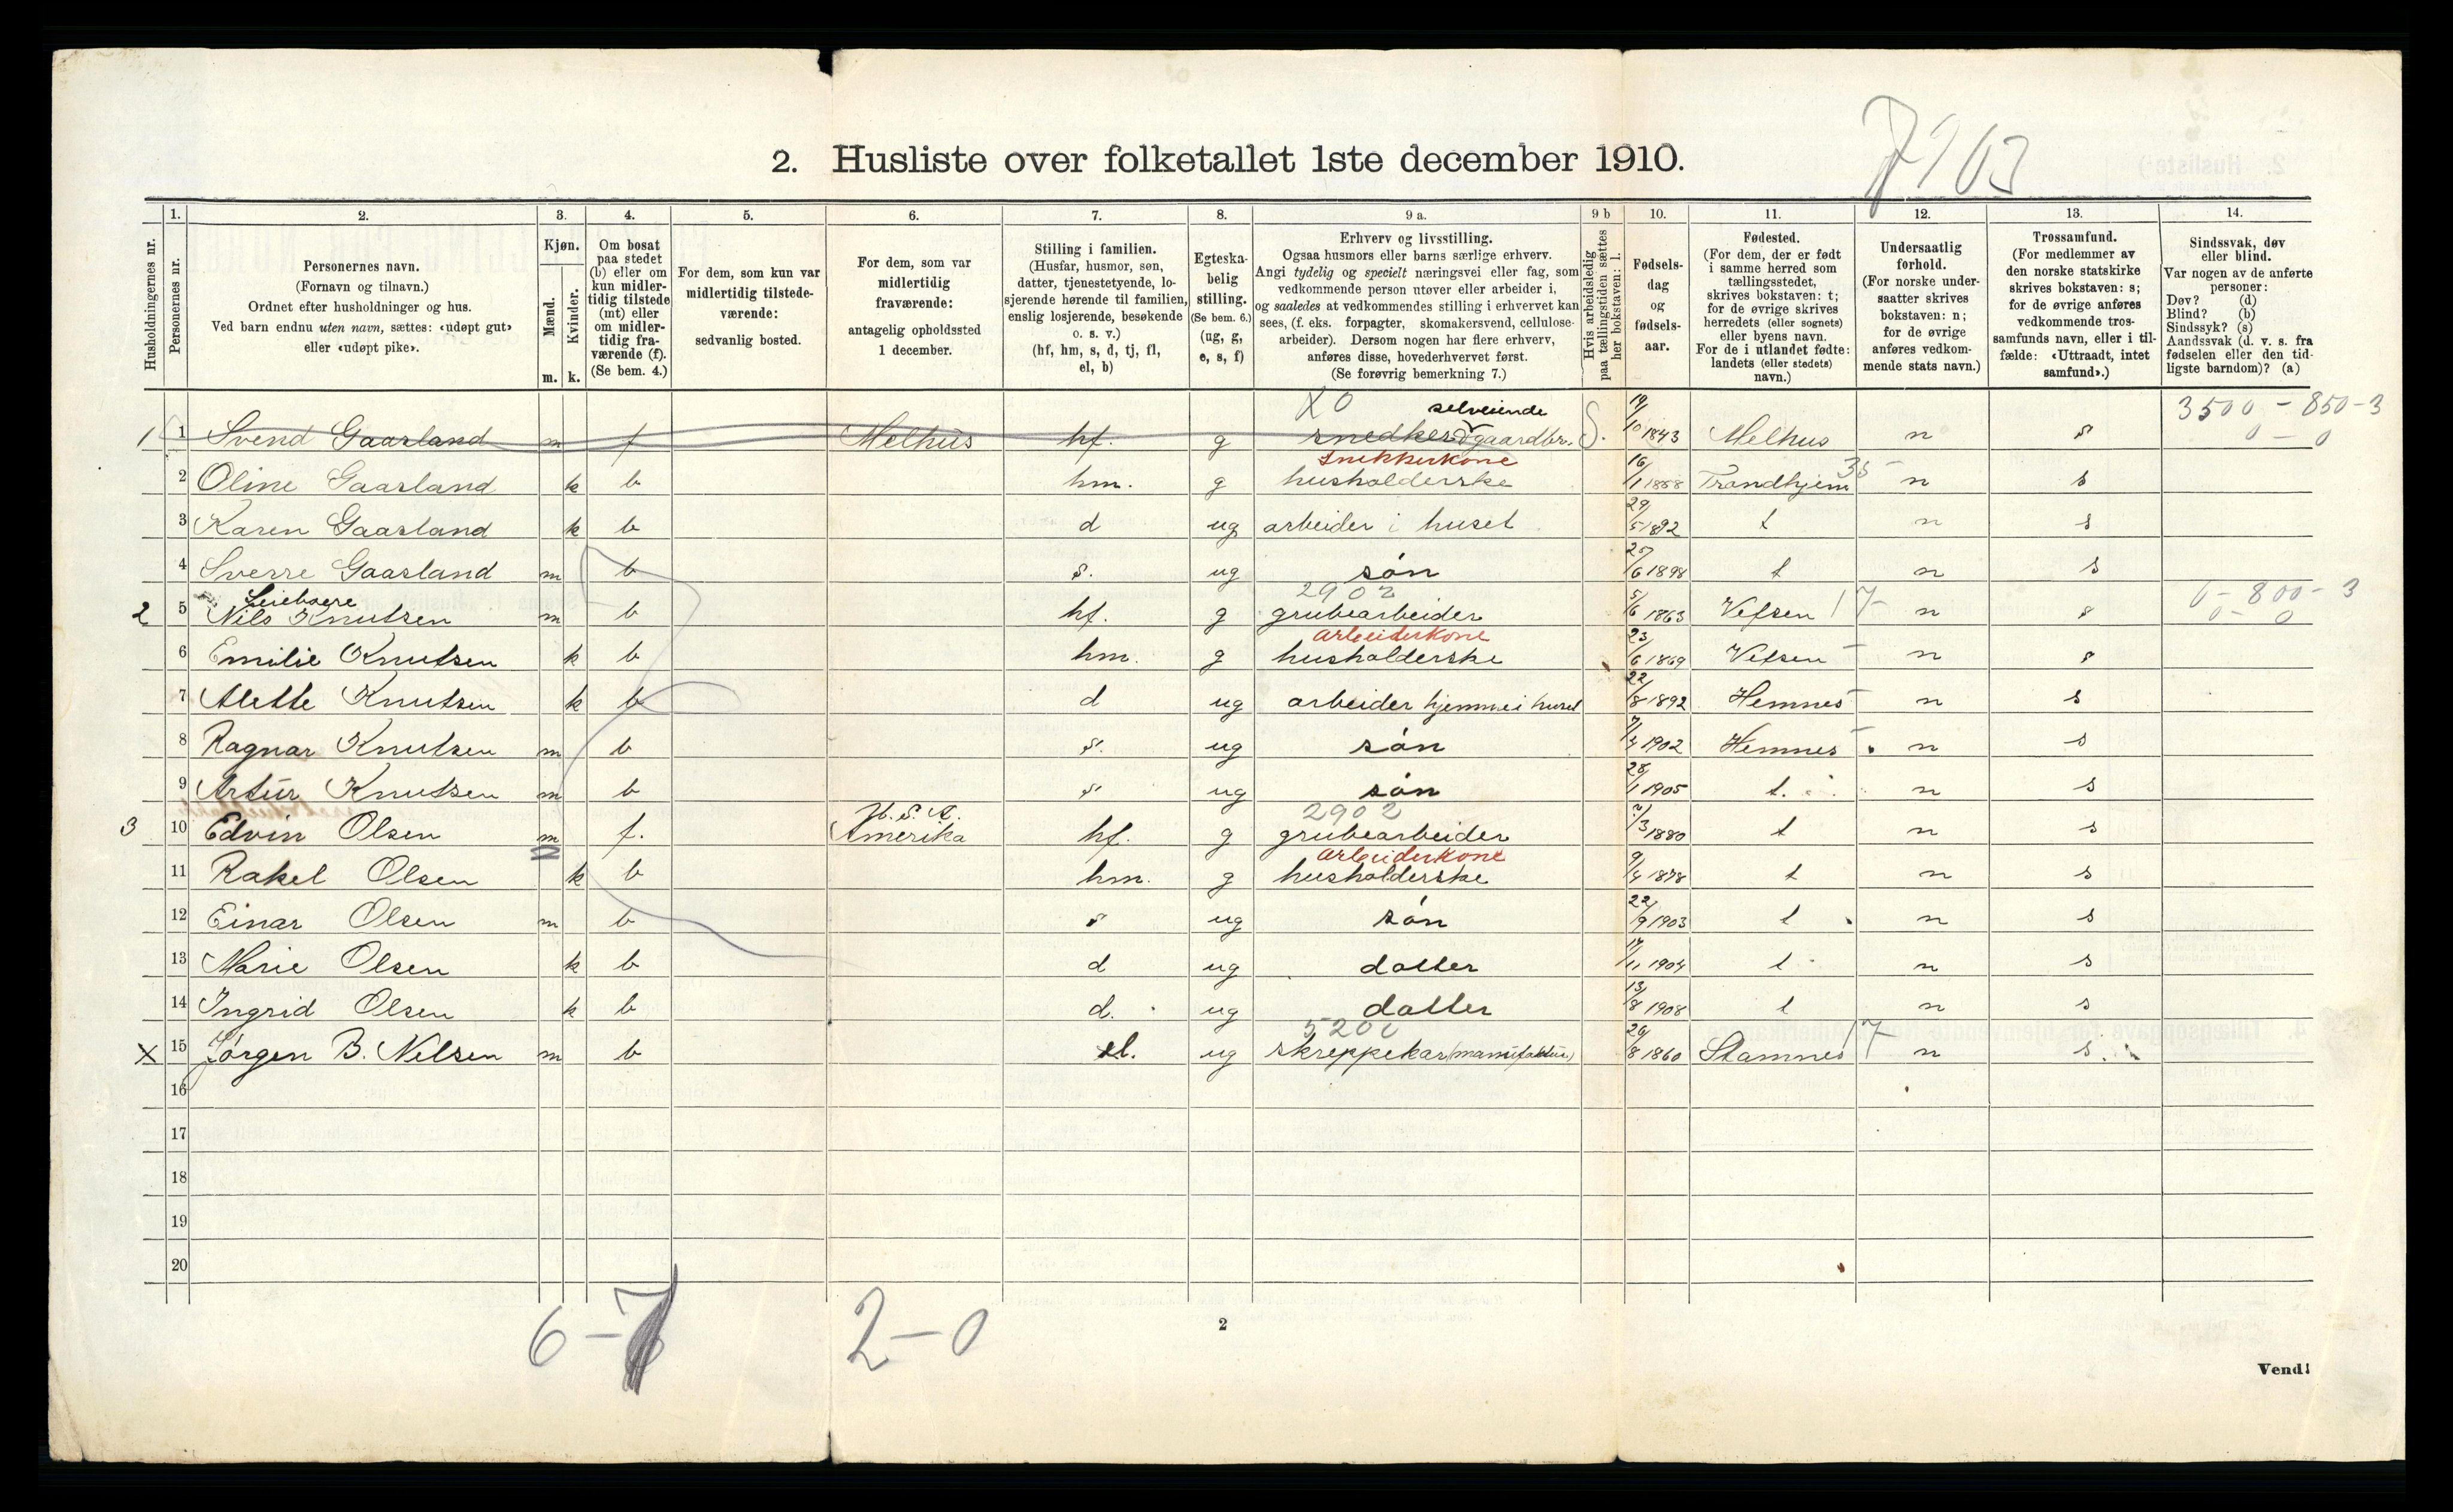 2. Husliste over folketallet 1ste december 1910.
7903
Husholdningernes nr.
1. Personernes nr.
2. Personernes navn. (Fornavn og tilnavn.) Ordnet efter husholdninger og hus. Ved barn endnu uten navn, sættes: «udøpt gut» eller «udøpt pike».
3. Kjøn. Mænd. m. Kvinder. k.
4. Om bosat paa stedet (b) eller om kun midlertidig tilstede (mt) eller om midlertidig fraværende (f). (Se bem. 4.)
5. For dem, som kun var midlertidig tilstedeværende: sedvanlig bosted.
6. For dem, som var midlertidig fraværende: antagelig opholdssted 1 december.
7. Stilling i familien. (Husfar, husmor, søn, datter, tjenestetyende, losjerende hørende til familien, enslig losjerende, besøkende o. s. v.) (hf, hm, s, d, tj, fl, el, b)
8. Egteskabelig stilling. (Se bem. 6.) (ug, g, e, s, f)
9 a. Erhverv og livsstilling. Ogsaa husmors eller barns særlige erhverv. Angi tydelig og specielt næringsvei eller fag, som vedkommende person utøver eller arbeider i, og saaledes at vedkommendes stilling i erhvervet kan sees, (f. eks. forpagter, skomakersvend, cellulosearbeider). Dersom nogen har flere erhverv, anføres disse, hovederhvervet først. (Se forøvrig bemerkning 7.)
9 b Hvis arbeidsledig paa tællingstiden sættes her bokstaven: l.
10. Fødselsdag og fødselsaar.
11. Fødested. (For dem, der er født i samme herred som tællingsstedet, skrives bokstaven: t; for de øvrige skrives herredets (eller sognets) eller byens navn. For de i utlandet fødte: landets (eller stedets) navn.)
12. Undersaatlig forhold. (For norske undersaatter skrives bokstaven: n; for de øvrige anføres vedkommende stats navn.)
13. Trossamfund. (For medlemmer av den norske statskirke skrives bokstaven: s; for de øvrige anføres vedkommende trossamfunds navn, eller i tilfælde: «Uttraadt, intet samfund».)
14. Sindssvak, døv eller blind. Var nogen av de anførte personer: Døv? (d) Blind? (b) Sindssyk? (s) Aandssvak (d. v. s. fra fødselen eller den tidligste barndom)? (a)
X0 selveiende 3500 - 850-3
1 1 Svend Gaarland m f Melhus hf. g snedker & gaardbr. S. 19/10 1843 Melhus n s 0 - 0
Snekkerkone
2 Oline Gaarland k b hm. g husholderske 16/1 1858 Trondhjem 35 n s
3 Karen Gaarland k b d ug arbeider i huset 29/5 1892 t n s
4 Sverre Gaarland m b s. ug søn 27/6 1898 t n s
Leieboere 2902 0 - 800 - 3
2 5 Nils Knutsen m b hf. g grubearbeider 5/6 1863 Vefsen 17 n s 0 - 0
arbeiderkone
6 Emilie Knutsen k b hm. g husholderske 23/6 1869 Vefsen n s
7 Alette Knutsen k b d ug arbeider hjemme i huset 22/8 1892 Hemnes n s
8 Ragnar Knutsen m b s. ug søn 7/4 1902 Hemnes n s
9 Artur Knutsen m b s ug søn 28/1 1905 t. n s
U.S.A. 2902
3 10 Edvin Olsen m f. Amerika hf. g grubearbeider 7/3 1880 t n s
arbeiderkone
11 Rakel Olsen k b hm. g husholderske 9/4 1878 t n s
12 Einar Olsen m b s ug søn 22/9 1903 t n s
13 Marie Olsen k b d ug datter 17/11 1904 t n s
14 Ingrid Olsen k b d. ug datter 13/8 1908 t n s
5200
X 15 Jørgen B. Nelsen m b el. ug skreppekar (manufaktur) 29/8 1860 Stamnes 17 n s.
16
17
18
19
20
6 - 7 2 - 0
2
Vend!